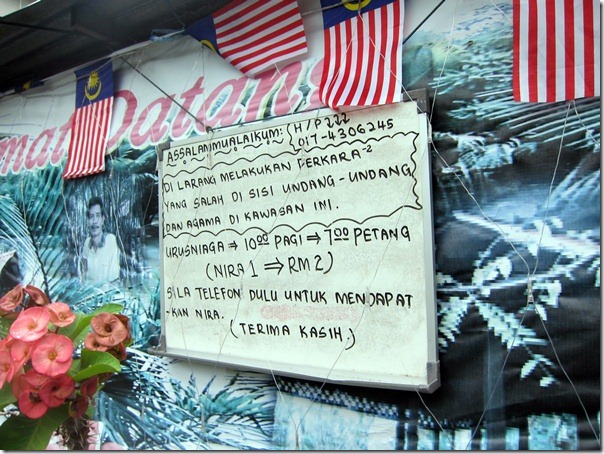 mat Datang
ASSALAMMUALAIKUM: H/P
017-4306245
DI LARANG MELAKUKAN PERKARA-2
YANG SALAH DI SISI UNDANG-UNDANG
DAN AGAMA DI KAWASAN INI.
URUSNIAGA ⇒ 10.00 PAGI ⇒ 7.00 PETANG
(NIRA 1 ⇒ RM2)
SILA TELEFON DULU UNTUK MENDAPAT
-KAN NIRA.
(TERIMA KASIH.)